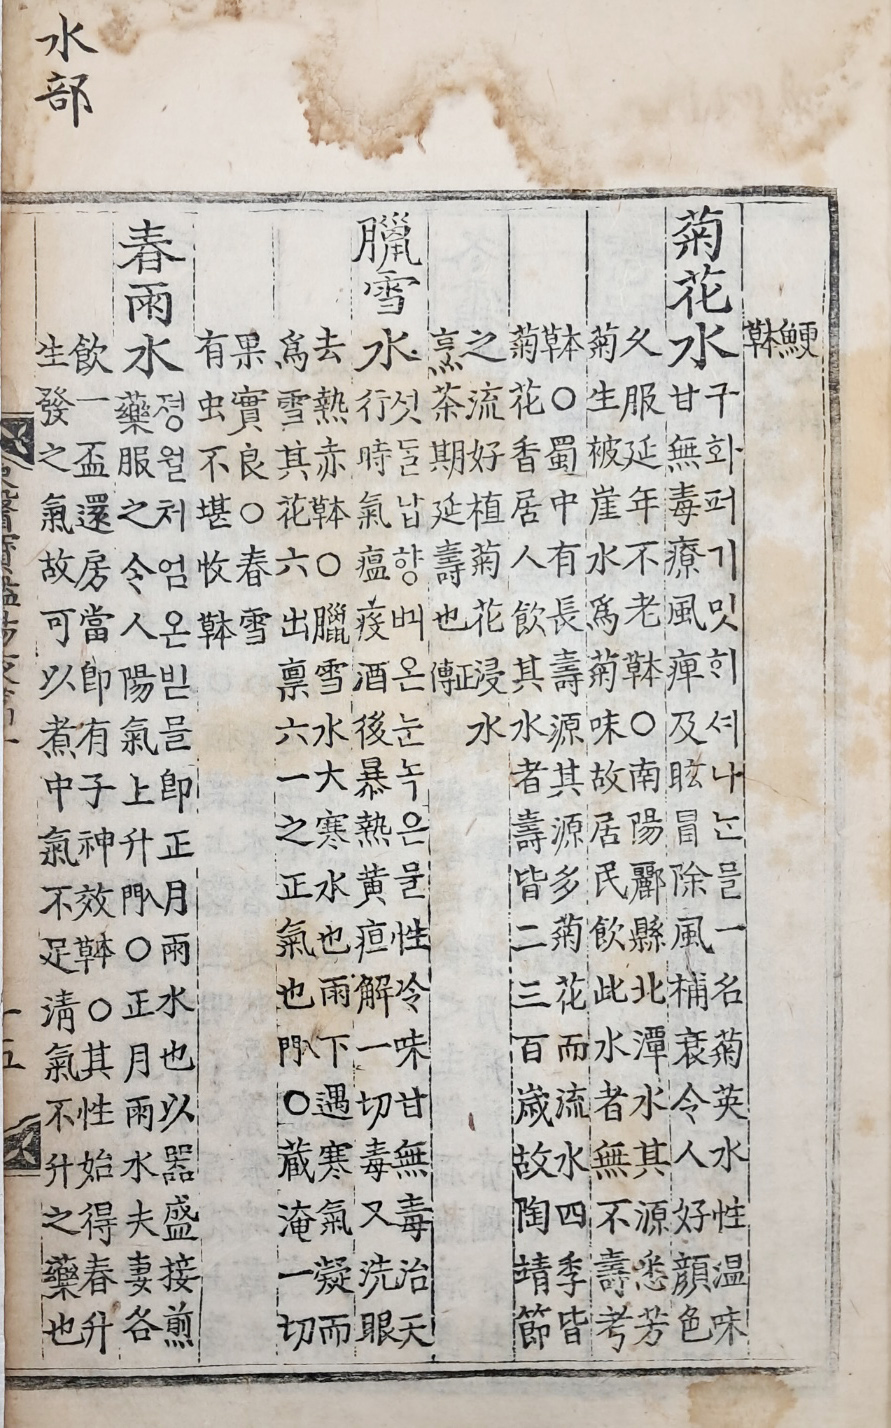 水部
鯁
本草
菊花水
구화퍼기밋희셔나ᄂᆞᆫ믈一名菊英水性温味
甘無毒療風痺及眩冒除風補衰令人好顔色
久服延年不老本草○南陽酈縣北潭水其源悉芳
菊生被崖水爲菊味故居民飮此水者無不壽考
本草○蜀中有長壽源其源多菊花而流水四季皆
菊花香居人飮其水者壽皆二三百歲故陶靖節
之流好植菊花浸水
烹茶期延壽也正傳
臘雪水
섯ᄃᆞᆯ납향ᄠᅴ온눈녹은믈性冷味甘無毒治天
行時氣瘟疫酒後暴熱黄疸解一切毒又洗眼
去熱赤本草○臘雪水大寒水也雨下遇寒氣凝而
爲雪其花六出禀六一之正氣也入門○藏淹一切
果實良○春雪
有虫不堪收本草
春雨水
졍월처엄온빈믈卽正月雨水也以器盛接煎
藥服之令人陽氣上升入門○正月雨水夫妻各
飮一盃還房當卽有子神效本草○其性始得春升
生發之氣故可以煮中氣不足清氣不升之藥也